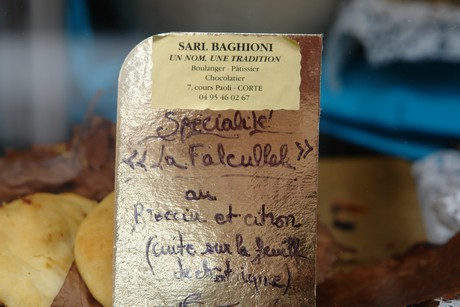 SARL BAGHIONI
UN NOM, UNE TRADITION
Boulanger - Pâtissier
Chocolatier
7, cours Paoli - CORTE
04 95 46 02 67
Spécialité
"La Falculella"
au
Broccin et citron
(cuite sur la feuille
de chataigne)